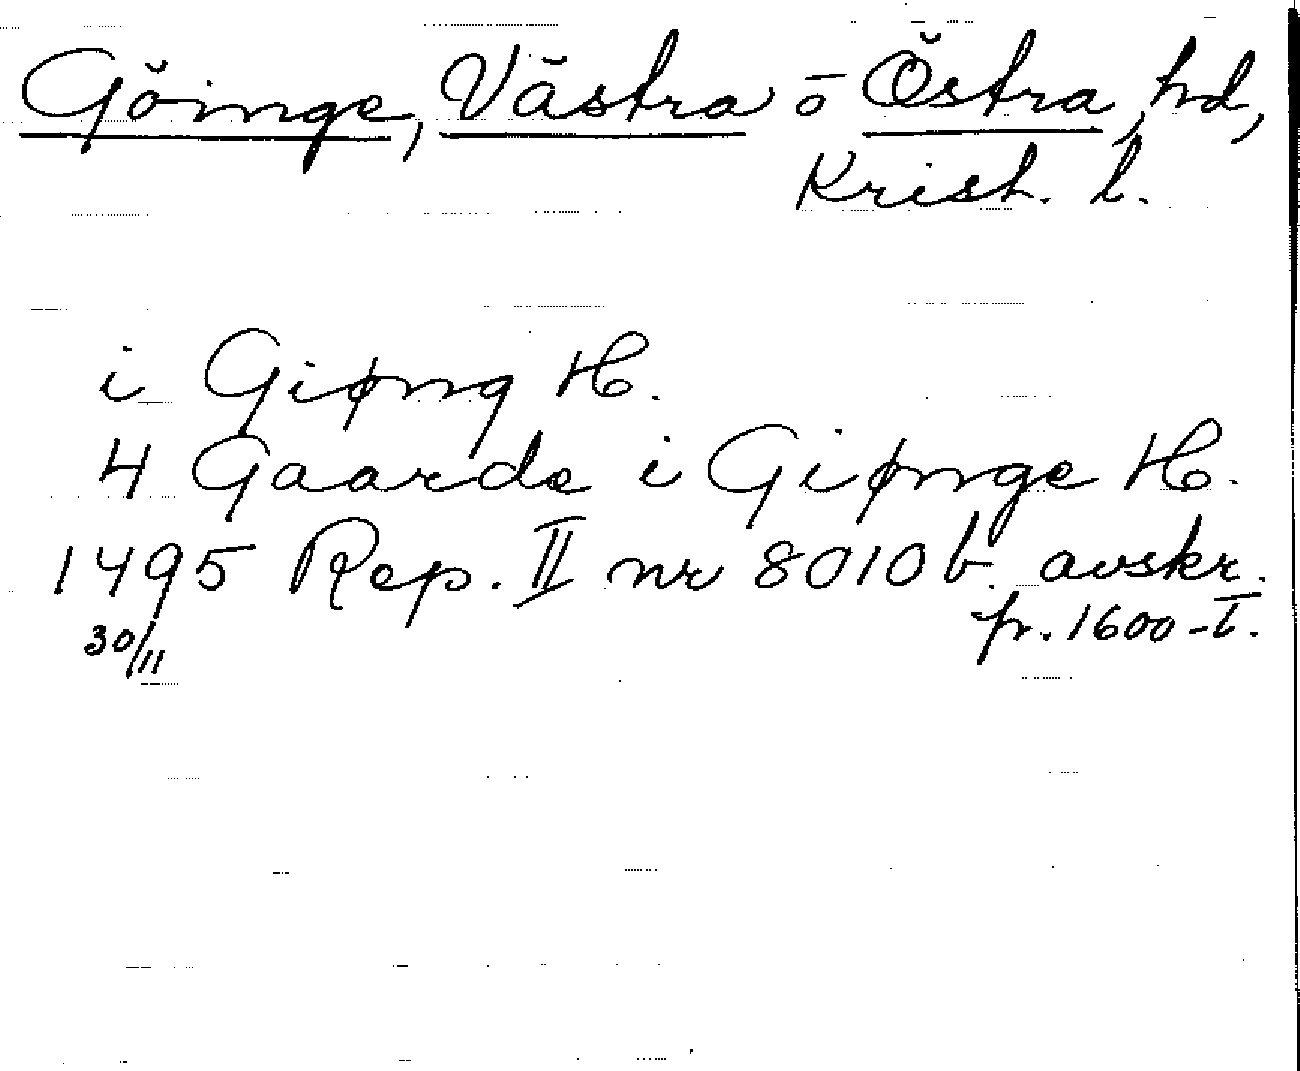 Göinge, Västra o Östra, hd,
Krist. l.
i Giøng H.
4 Gaarde i Giønge H.
1495 Rep. II nr 8010 b. avskr.
30/11 fr. 1600-t.